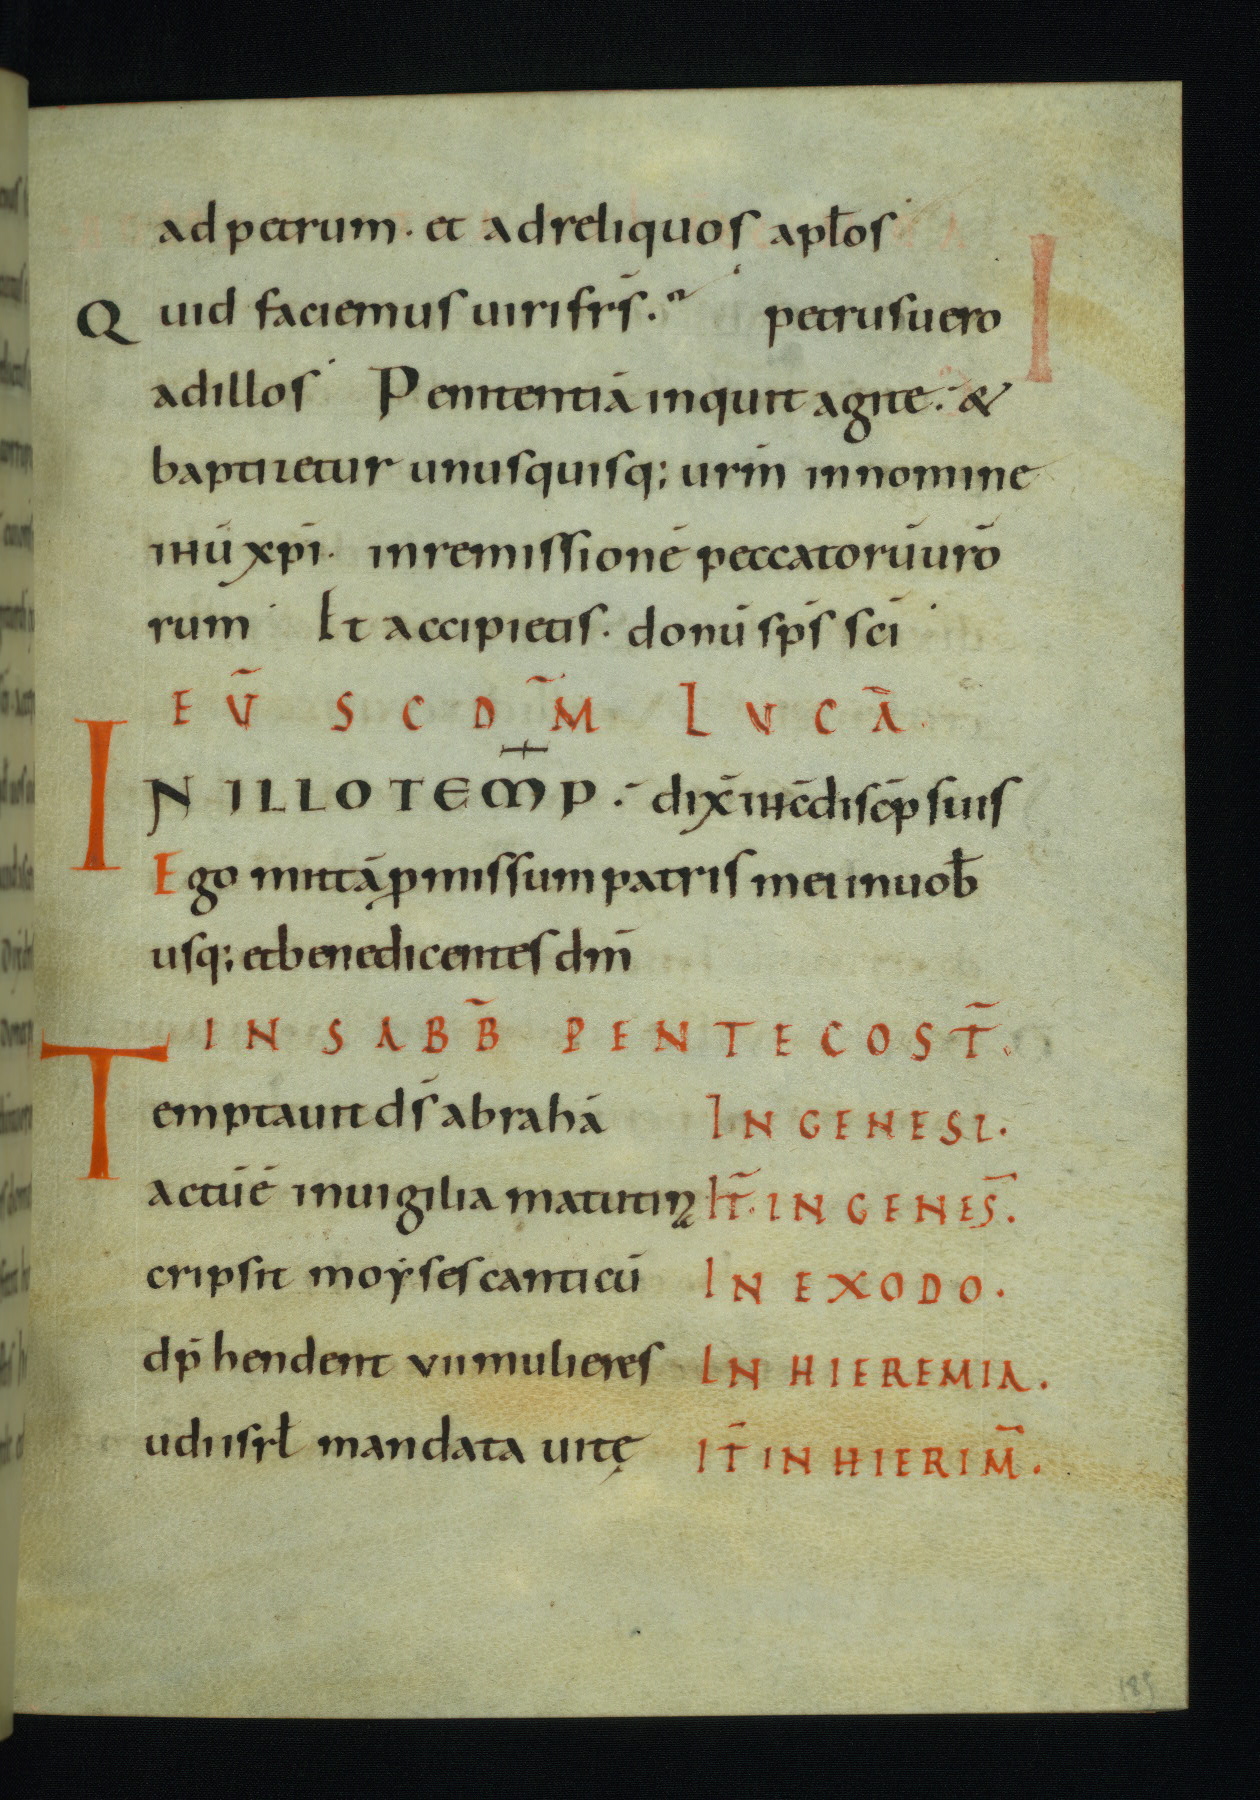 ad petrum. et ad reliquos apłos
Quid faciemus uiri fr̄s. petrus uero
ad illos Penitentiā inquit agite. &
baptizetur unusquisq; ur̄m in nomine
ihū xp̄i. in remissionē peccatorū urō
rum Et accipietis. donū sp̄s sc̄i
EṼ SCDM̃ LVCÃ.
IN ILLO TEM̃P. dix̄ ihc̄ discp̄ suis
Ego mittā ꝓmissum patris mei in uob̄
usq; et benedicentes dm̄
IN SABB̃ PENTECOST̃.
Temptauit ds̄ abrahā IN GENESI.
actū ē in uigilia matutin IT̃. IN GENES̃.
cripsit moyses canticū IN EXODO.
dp̄hendent vii mulieres IN HIEREMIA.
udi isrł mandata uitę IT̃ IN HIERIM̃.
185